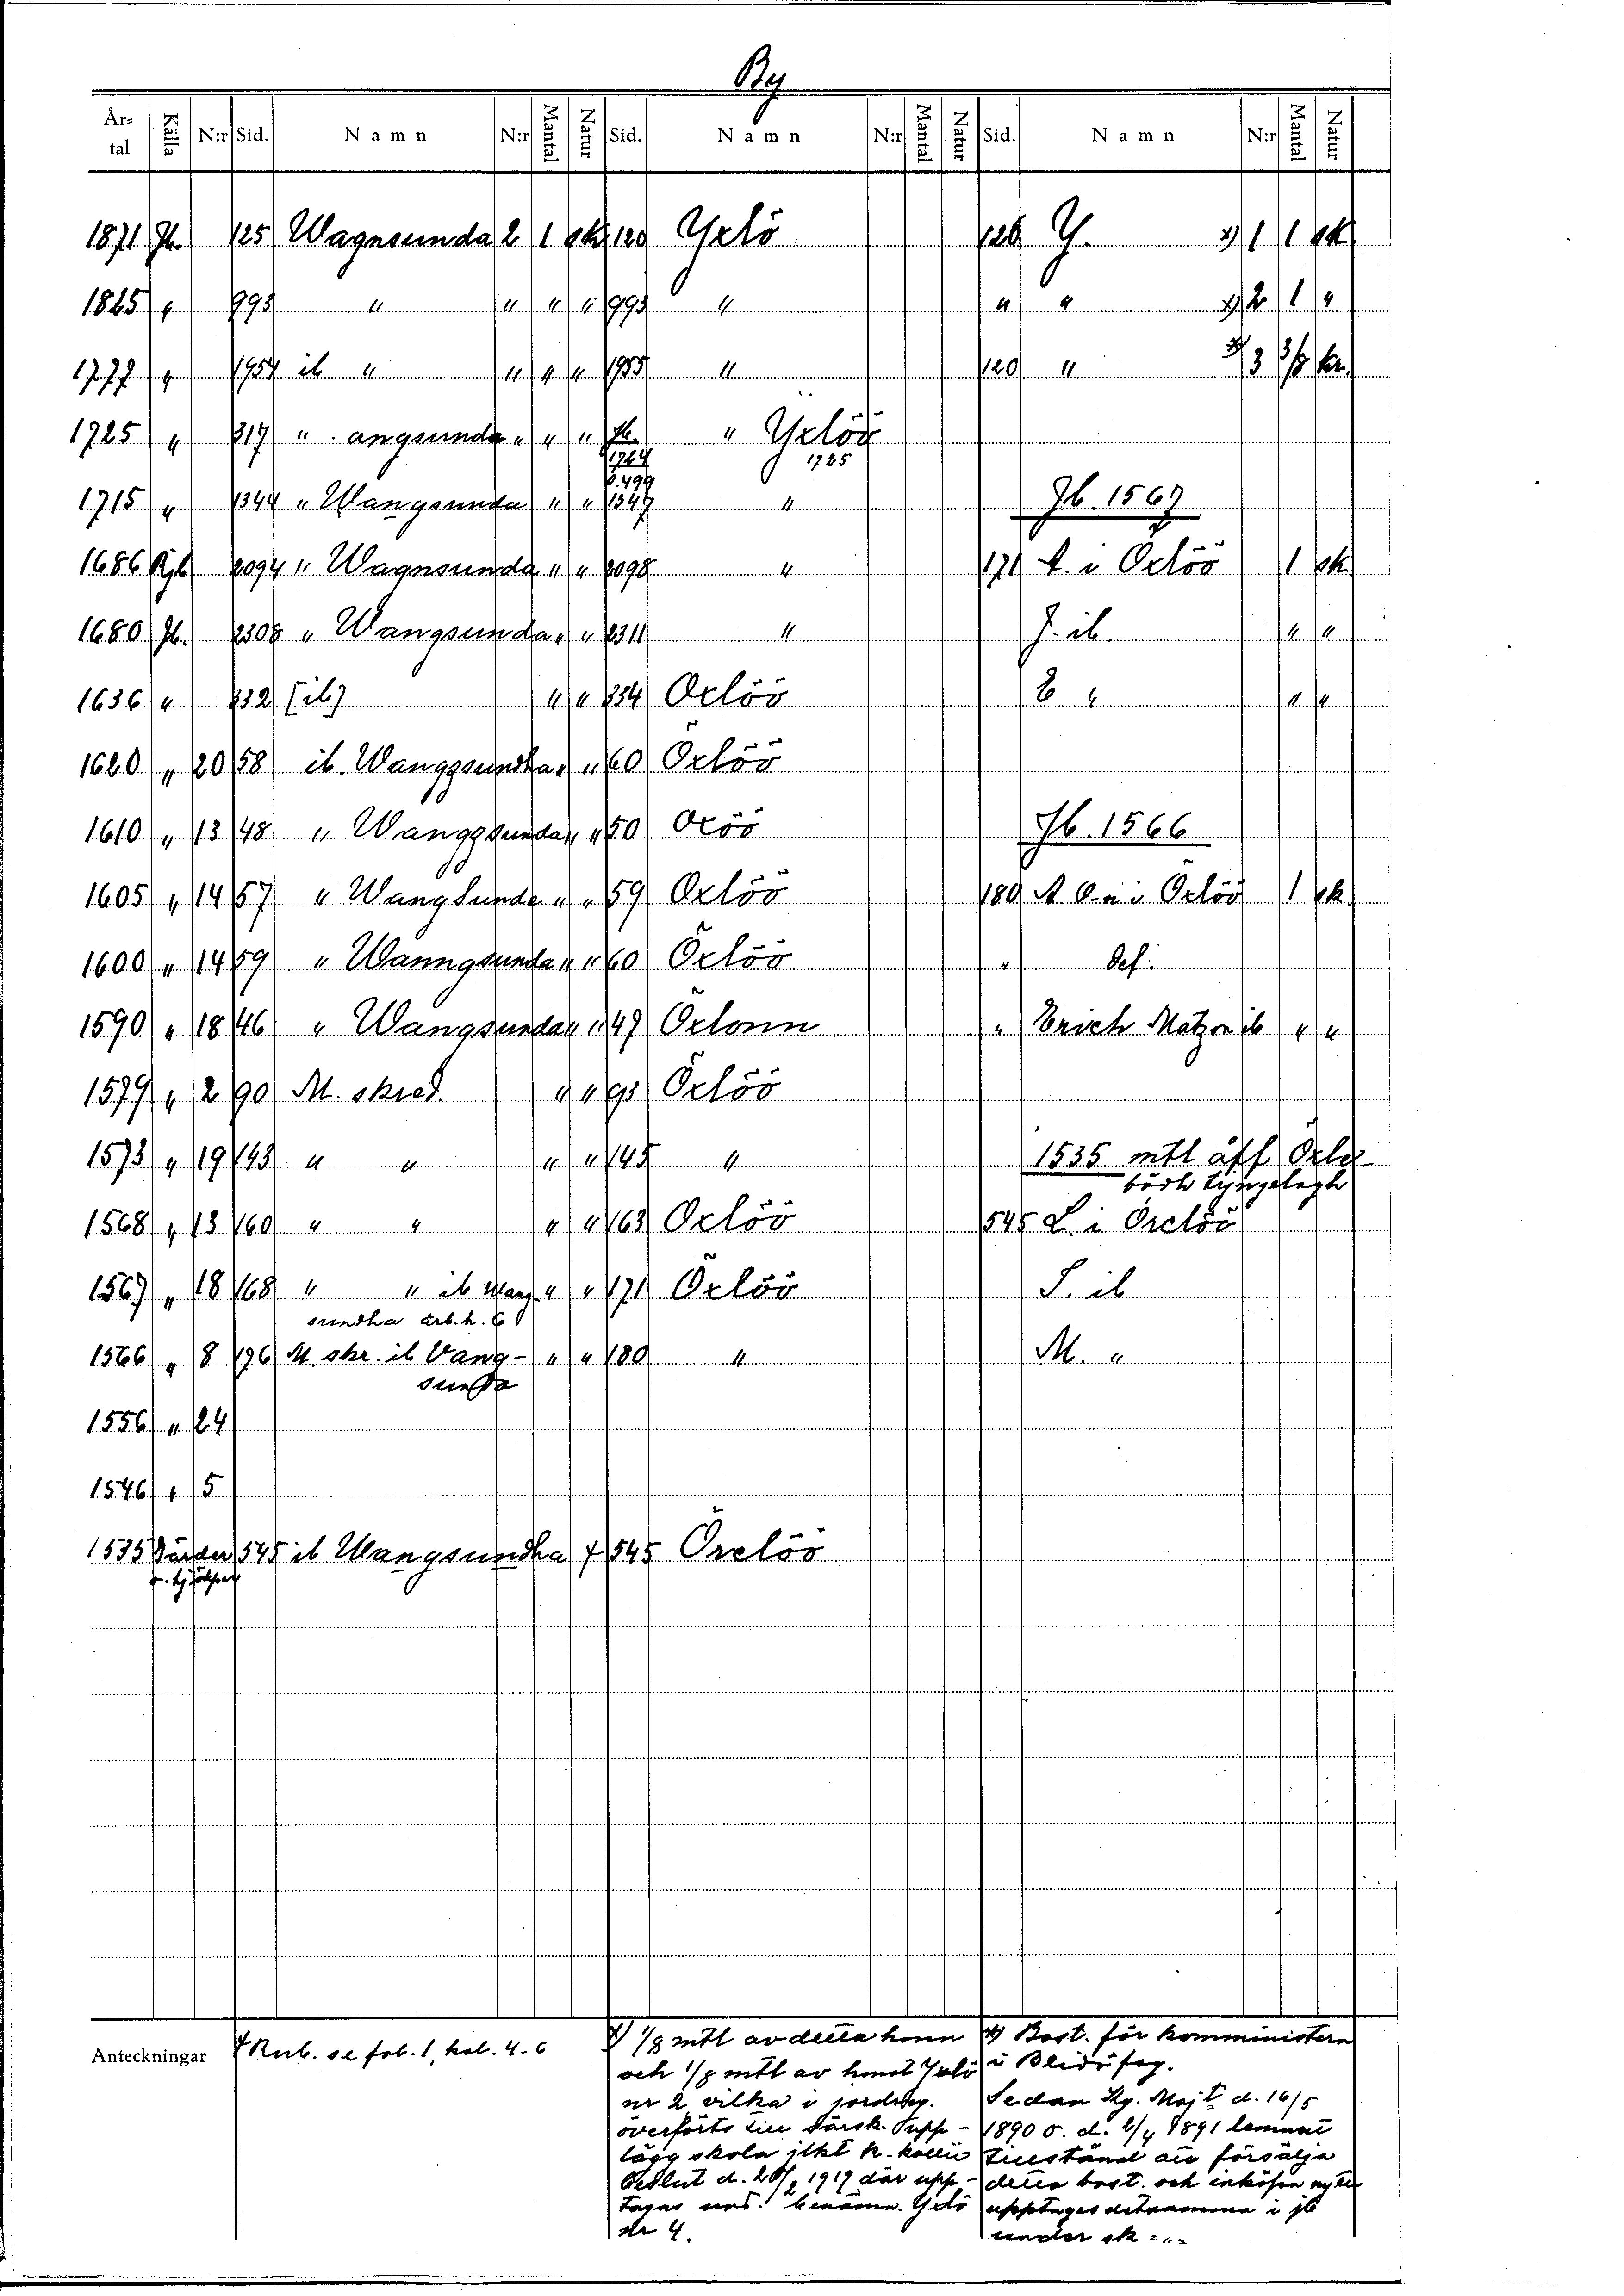 By
Årtal Källa N:r Sid. Namn N:r Mantal Natur Sid. Namn N:r Mantal Natur Sid. Namn N:r Mantal Natur
1871 Jb. 125 Wagnsunda 2 1 sk 126 Yxlö 126 Y. x) 1 1 sk
1825 " 993 " " " " 993 " " " x) 2 1 "
1777 " 1954 ib " " " " 1955 " 120 " x) 3 3/8 kr.
1725 " 317 " . angsunda " " " Jb. " Yxlöö
1764 1725
s. 499
1715 " 1344 " Wangsunda " " 1347 " Jb. 1567
1686 Rjb 2094 " Wagnsunda " " 2098 " 171 A. i Öxlöö 1 sk
1680 Jb. 2308 " Wangsunda " " 2311 " J. ib. " "
1636 " 332 (ib) " " 334 Oxlöö E " " "
1620 " 20 58 ib. Wangzsundha " " 60 Öxlöö
1610 " 13 48 " Wanggsunda " " 50 Oxöö Jb. 1566
1605 " 14 57 " Wangsunda " " 59 Oxlöö 180 A. O-n i Oxlöö 1 sk
1600 " 14 59 " Wanngsunda " " 60 Öxlöö " Def.
1590 " 18 46 " Wangsunda " " 47 Öxlonn " Erich Matzon ib " "
1579 " 2 90 M. skred. " " 93 Öxlöö
1573 " 19 143 " " " " 145 " 1535 mtl aff Öxlö
1568 " 13 160 " " " " 163 Oxlöö 545 L. i Örelöö
1567 " 18 168 " " ib Wang " " 171 Öxlöö S. ib
sundha
1566 " 8 176 M. skr. ib Vang- " " 180 " M. "
sunda
1556 " 24
1546 " 5
1535 545 ib Wangsundha 545 Örelöö
Anteckningar
Rub. se fol. 1, kol. 4-6
1/8 mtl av detta hmn
och 1/8 mtl av hmnt Yxlö
nr 2 vilka i jordreg.
överförts till särsk. Supp-
lägg skola jlkt K. kollii
beslut d. 1919 där upp-
tagas und. benämn. Yxlö
nr 4.
x) Bost. för komministern
i Blidö fsg.
Sedan Kg. Majt d. 16/5
1890 o. d. 2/4 1891 lemnat
tillstånd att försälja
detta bost. och inköpa nytt
upptages detsamma i jb
under sk -"-